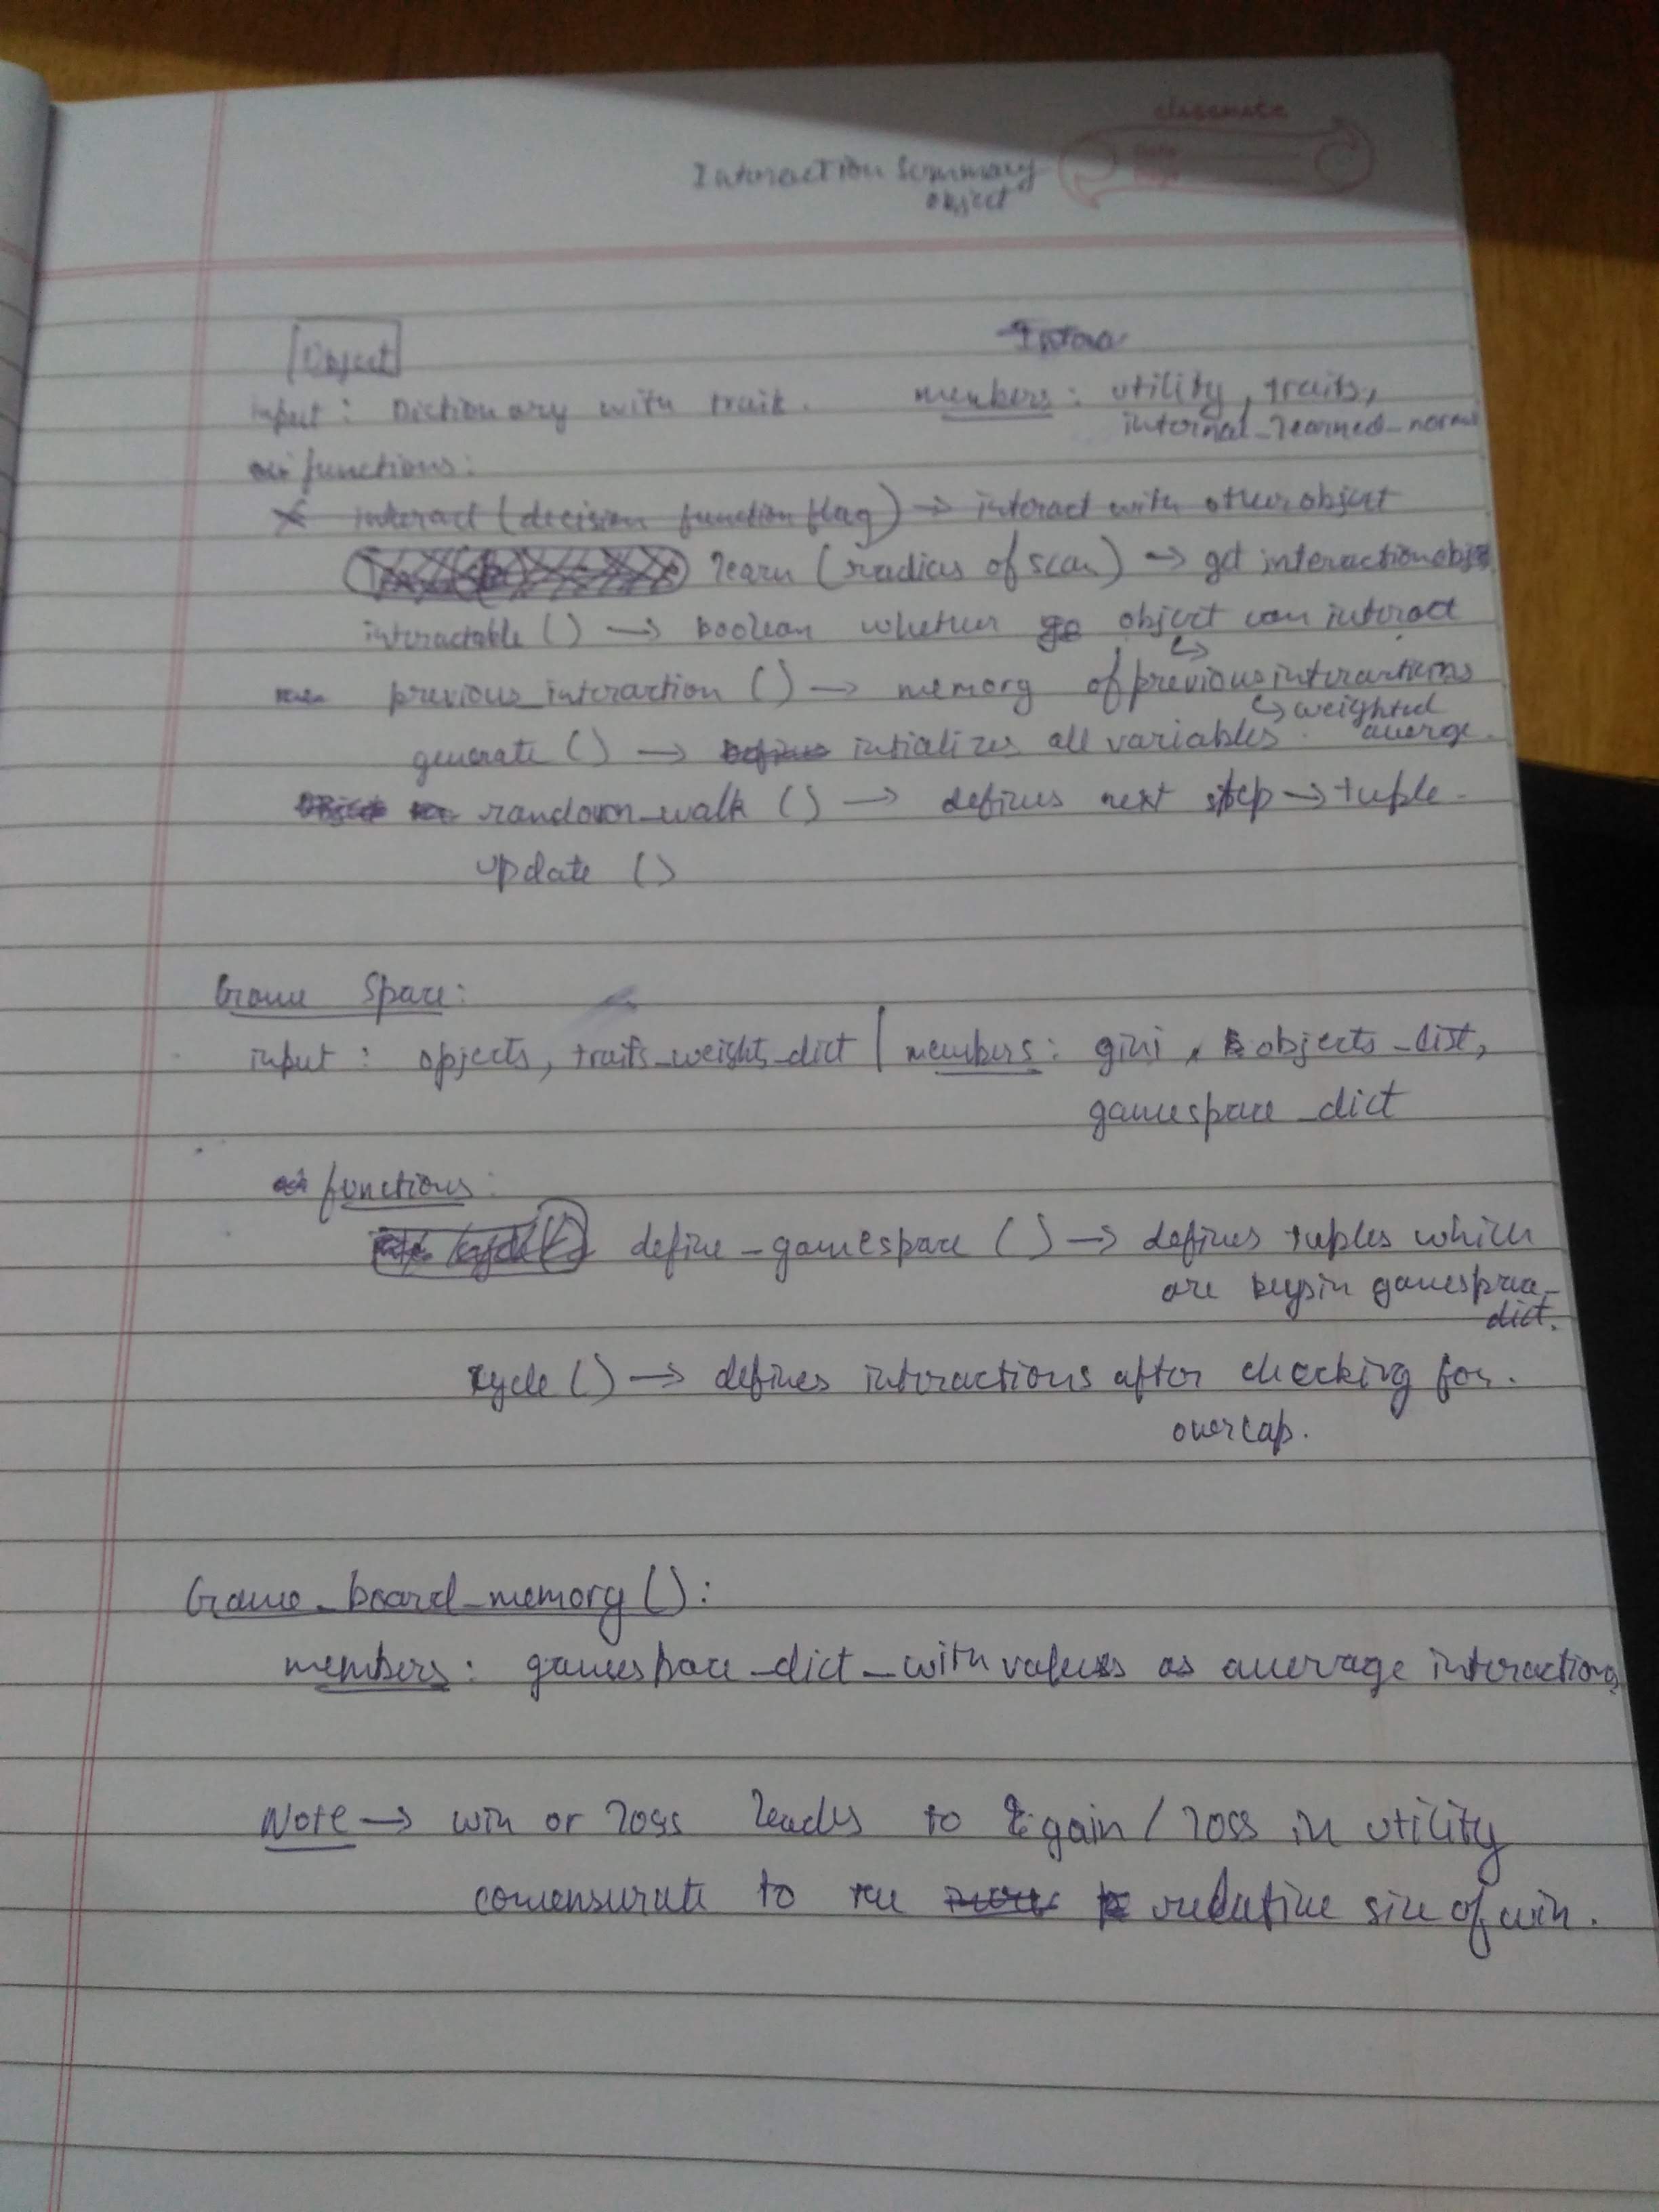 classmate
Interaction Summary
object
Object
input : Dictionary with trait. members : utility, traits,
internal_learned_norms
functions:
interact (decision function flag) → interact with other object
learn (radius of scan) → get interaction obj
interactable () → boolean whether object can interact
previous_interaction () → memory of previous interactions
↳ weighted
averge.
generate () → intializes all variables.
random_walk () → defines next step → tuple.
update ()
Game Space:
input : objects, traits_weights_dict | members : gini, objects_dist,
gamespace_dict
functions:
define_gamespace () → defines tuples which
are keys in gamespace_
dict.
cycle () → defines interactions after checking for.
overlap.
Game_board_memory () :
members : gamespace_dict_with values as average interactions
Note → win or loss leads to gain / loss in utility
comensurate to the relative size of win.